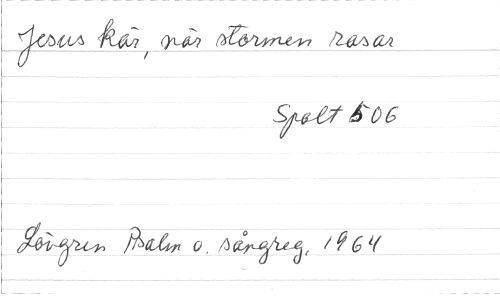 Jesus kär, når stormen rasar
Spalt 506
Lövgren Psalm o. sångreg. 1964